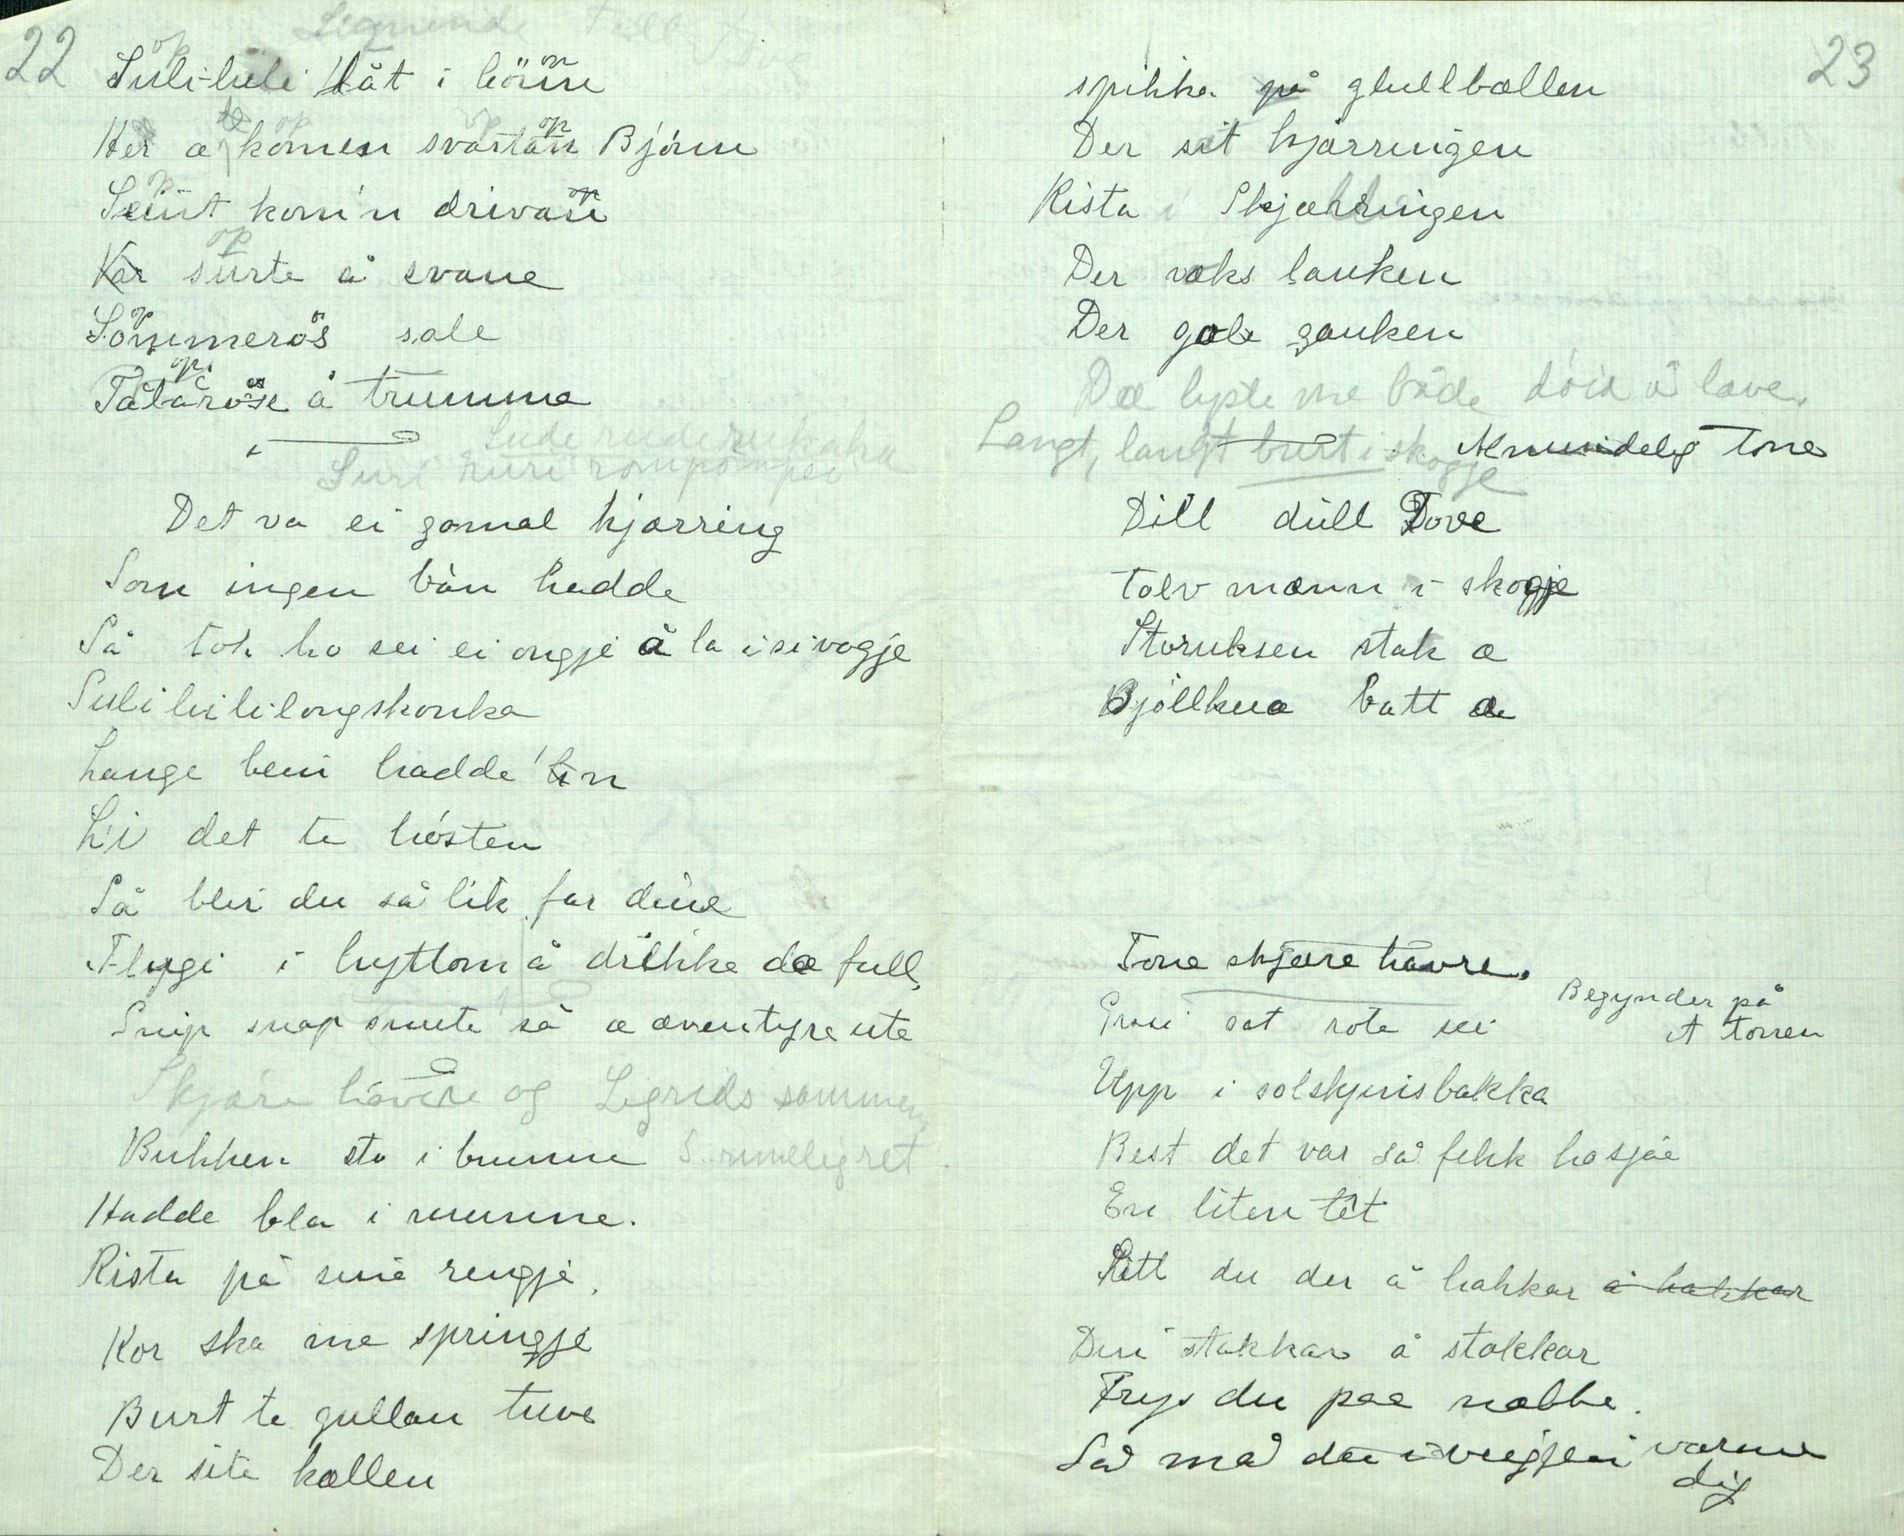 22
Suli-luli låt i hönn
Her æ komen svartan Björnn
Seint kom'n drivan
Kar surte å svane
Sommerös sale
Tåtåröse å trumme
Suderuderukaka
Suri ruri rompompei
Det va ei gamal kjærring
Som ingen bån hadde
Så tok ho sei ei ongje å la i si vogje
Suli lulilongskonka
Lange bein hadde 'n
Li det te hösten
Så blir du så lik far dine
Flygi i hyttom å drikke dæ full,
Snip snap snute så æ æventyre ute
Skjære håvere og Sigrids sammen
Bukken sto i brunne
Hadde bla i munne.
Rista på sine rengje,
Kor ska me springje
Burt te gullan tuve
Der site kællen
23
spikka på glullbællen
Der sit kjærringen
Rista i Skjærringen
Der vaks lauken
Der gole gauken
Dæ lyste me både döia å lave.
Langt, langt burt i skogje
Almindelig Tone
Dill düll Tove
Tolv mænn i skogje
Storuksen stak æ
Bjöllkua batt æ
Tone skjære håvre.
Begynder på
A tonen
Groni sat rote ni
Upp i solskjinsbakka
Best det var så fekk ho sjåe
En liten tit
Litt du der å hakkar å hakkar
Din stakkar å stakkar
Frys du paa næbbe.
Så må du i væggjen varme
dig